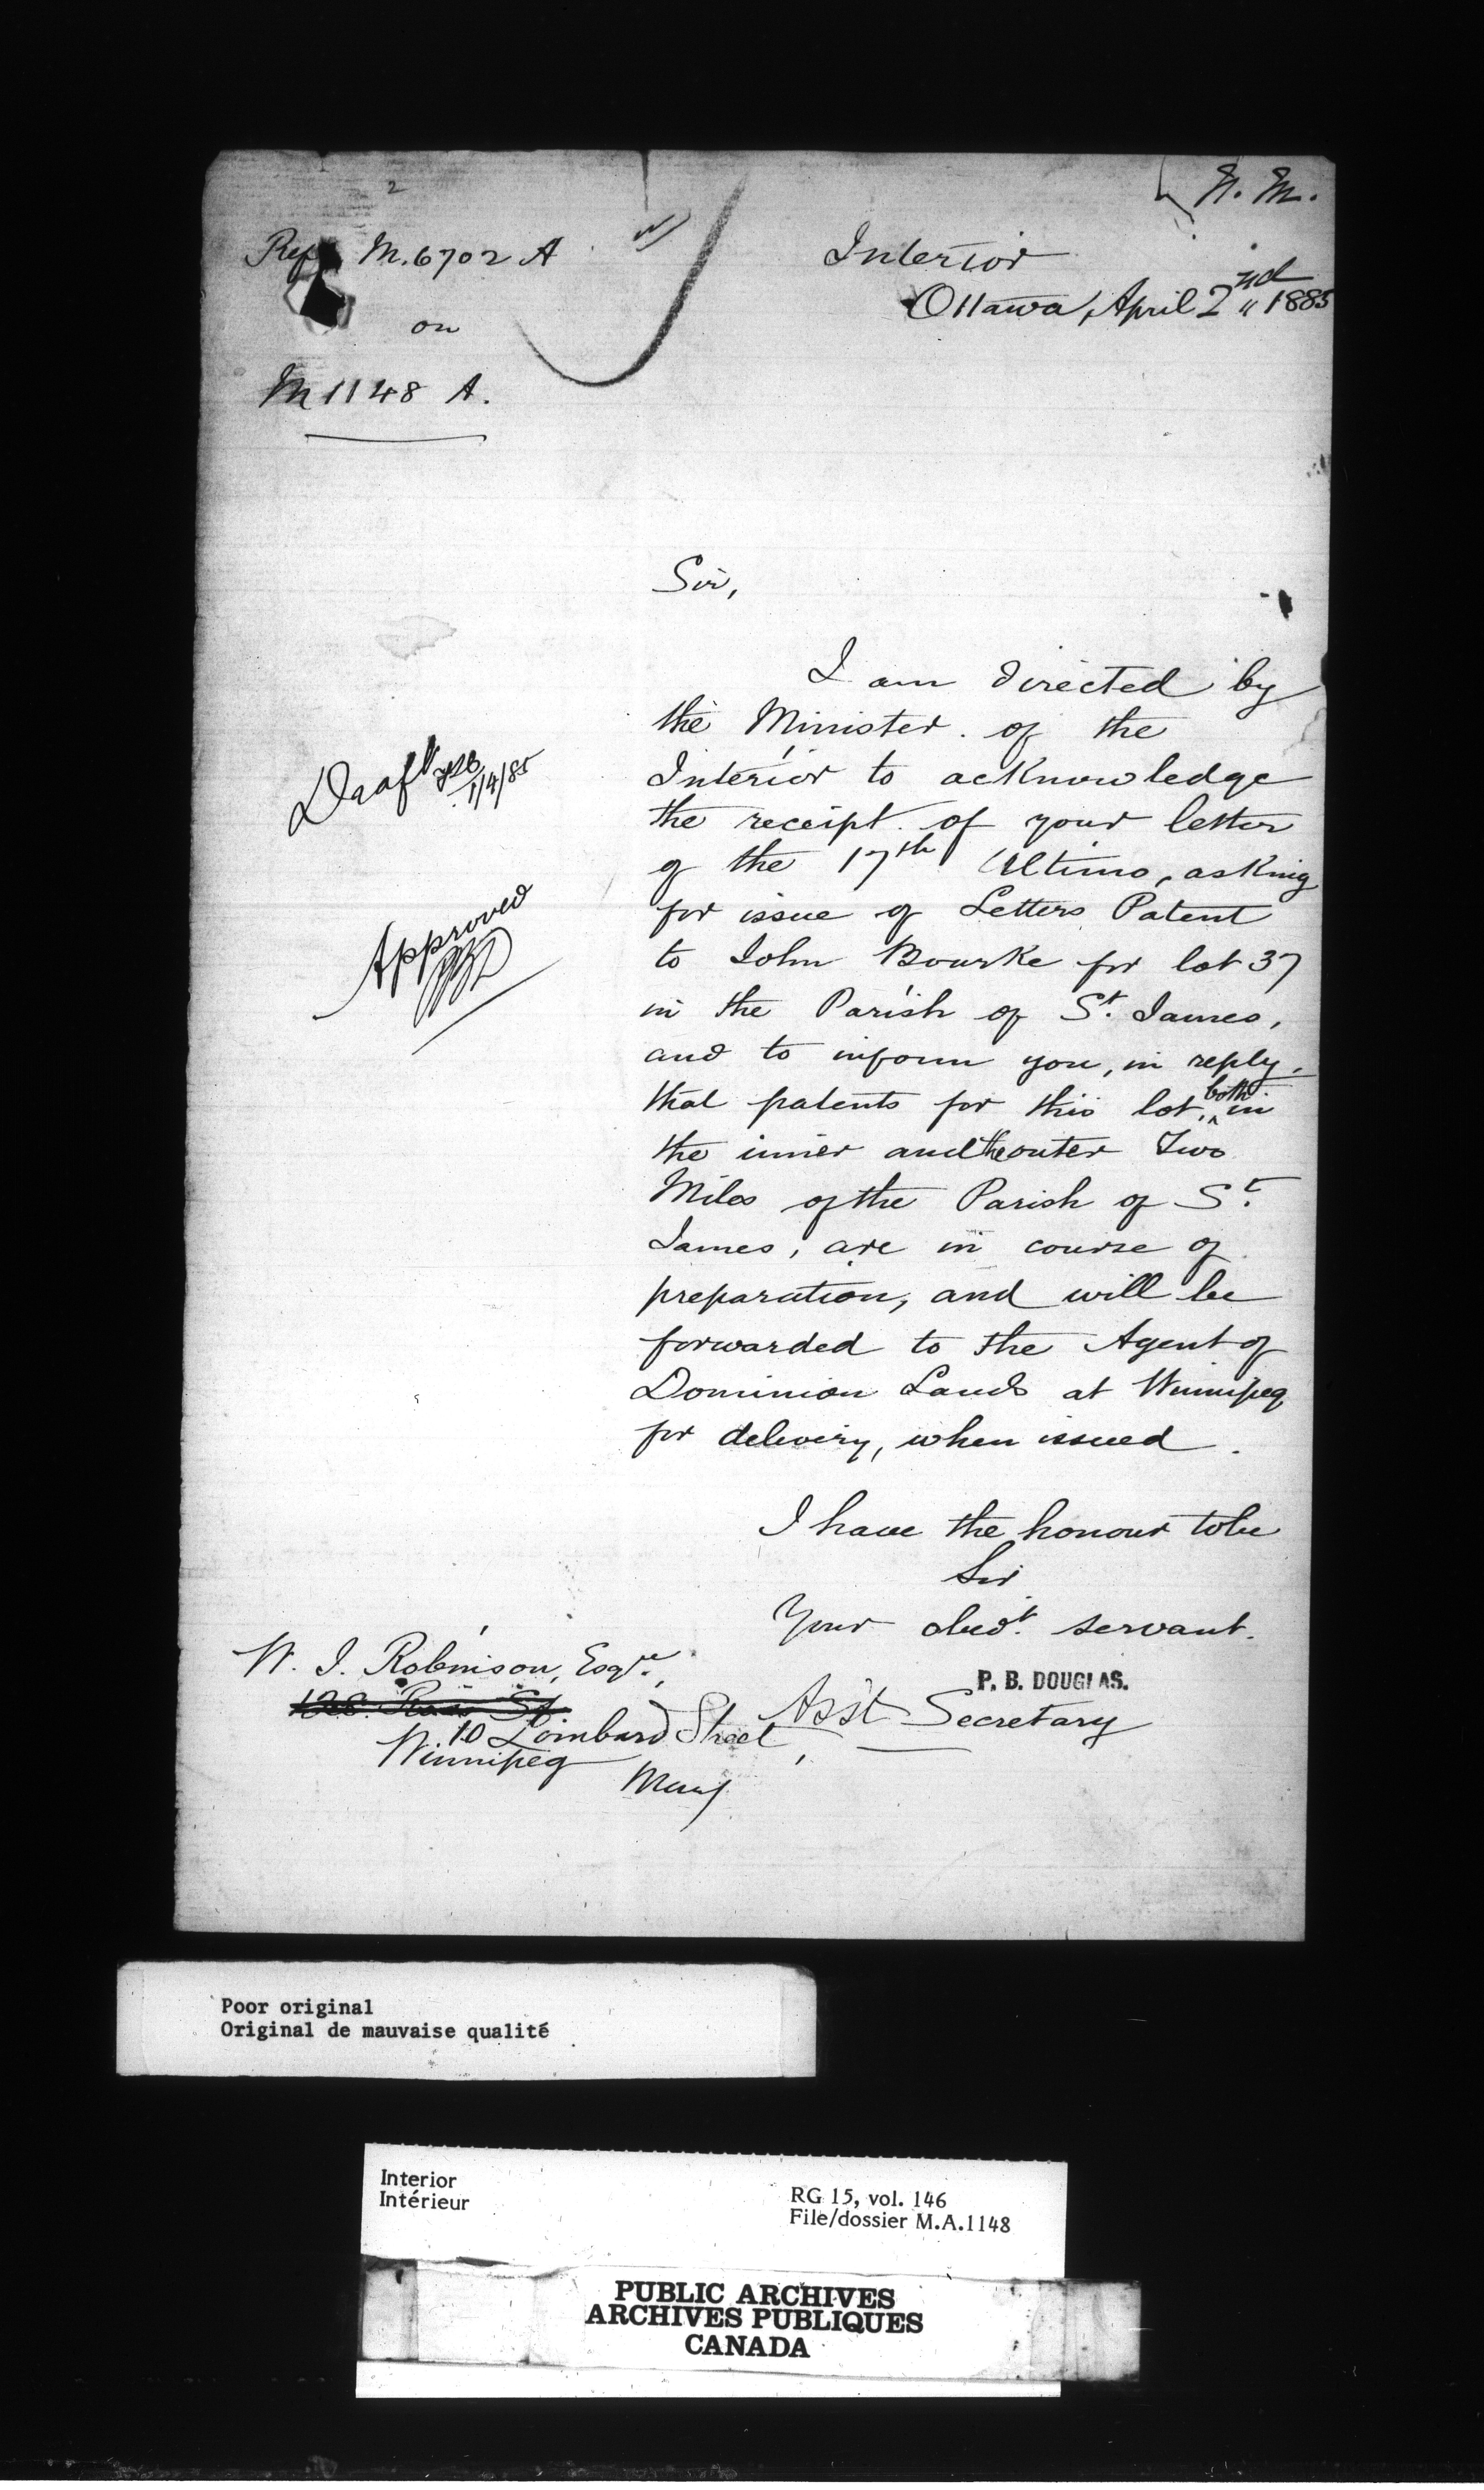 2
N. M.
Ref. M. 6702 A
Interior
Ottawa, April 2nd " 1885
on
M 1148 A.
Sir,
I am directed by
the Minister of the
Interior to acknowledge
the receipt of your letter
of the 17th Ultimo, asking
for issue of Letters Patent
to John Bourke for lot 37
in the Parish of St. James,
and to inform you, in reply,
that patents for this lot, both in
the inner and the outer Two
Miles of the Parish of St.
James, are in course of
preparation, and will be
forwarded to the Agent of
Dominion Lands at Winnipeg
for delivery, when issued.
Draft
1/4/85
Approved
I have the honour to be
Sir
Your obedt. servant.
P. B. DOUGLAS.
Asst Secretary
W. J. Robinson, Esqre.,
10 Lombard Street,
Winnipeg
Man
Poor original
Original de mauvaise qualité
Interior
Intérieur
RG 15, vol. 146
File/dossier M.A.1148
PUBLIC ARCHIVES
ARCHIVES PUBLIQUES
CANADA